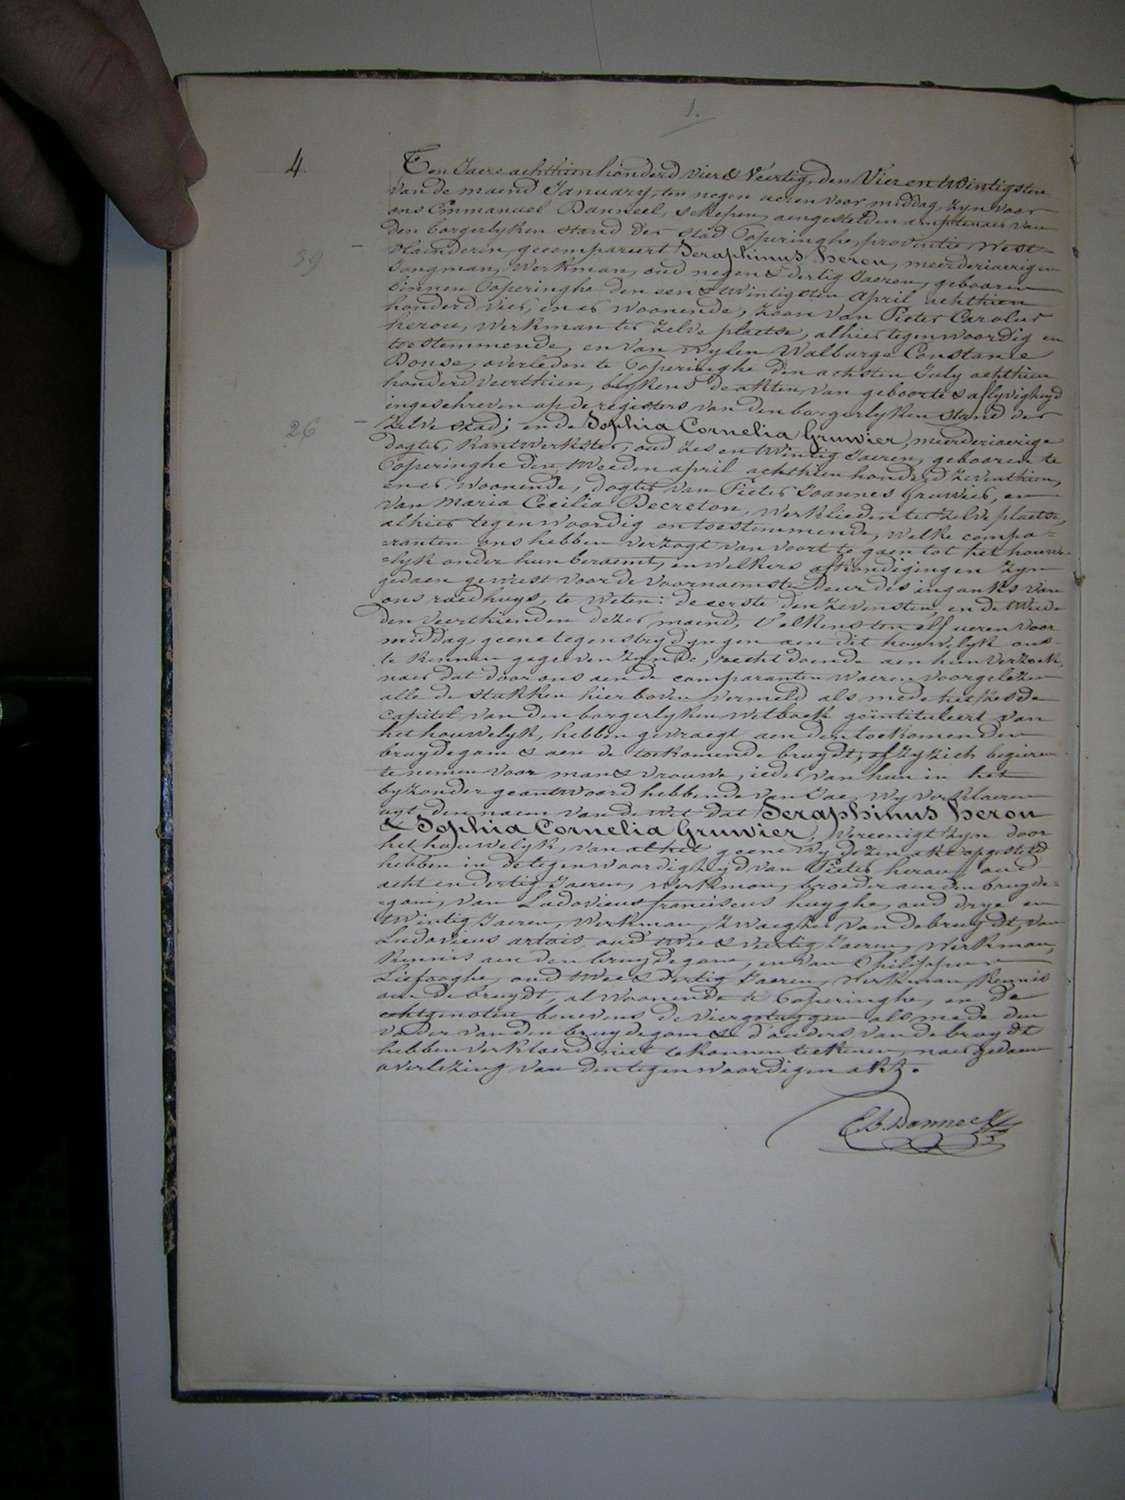 1.
4
Ten Jaere achthien honderd vier & veertig, den Vier en twintigsten
van de maend January, ten negen ueren voor middag, zyn voor
ons Emmanuel Danneel, schepen, aengestelden amptenaer van
den borgerlyken stand der stad Poperinghe, provintie West-
39
Vlaenderen, gecompareert Seraphinus Herou, meerderjaerigen
Jongman, Werkman, oud negen & dertig Jaeren, gebooren
binnen Poperinghe den een & twintigsten April achthien
honderd vier, en er woonende, zoon van Pieter Carolus
herou, Werkman ter zelve plaetse, alhier tegenwoordig en
toestemmende, en van wylen Walburga Constance
Donse, overleden te Poperinghe den achsten July achthien
honderd veerthien, blykens de akten van geboorte & aflyvigheyd
ingeschreven op de registers van den borgerlyken stand der
26
zelve stad; en de Sophia Cornelia Gruwier, meerderjaerige
dogter, kantwerkster, oud zes en twintig Jaeren, gebooren te
Poperinghe den tweeden april achthien honderd zeventhien,
en er woonende, dogter van Pieter Joannes Gruwier, en
van Maria Cecilia Decreton, werklieden ter zelve plaetse,
alhier tegenwoordig en toestemmende, welke compa-
-ranten ons hebben verzogt van voort te gaen tot het houwe-
-lyk onder hun beraemt, en welkers afkondigingen zyn
gedaen geweest voor de voornaemste deur des ingangs van
ons raedhuys, te weten: de eerste den zevensten, en de tweede
den veerthienden dezer maend, telkens ten elf ueren voor
middag, geene tegenstrydyngen aen dit houwelyk ons
te kennen gegeven zynde, recht doende aen hun verzoek,
naer dat door ons aen de comparanten waeren voorgelezen
alle de stukken hier boven vermeld als mede het zesde
capitel van den borgerlyken wetboek geïntituleert van
het houwelyk, hebben gevraegt aen den toekomenden
bruydegom & aen de toekomende bruydt, of zy zich begeeren
te neemen voor man & vrouwe, ieder van hun in het
byzonder geantwoord hebbende van Jae, Wy verklaeren
uyt den naem van de Wet dat Seraphinus Herou
& Sophia Cornelia Gruwier, vereenigt zyn door
het houwelyk, van al het geene Wy dezen akt opgesteld
hebben in de tegenwoordigheyd van Pieter herou, oud
acht en dertig Jaeren, werkman, broeder aen den bruyde-
-gom, van Ludovicus franciscus huyghe, oud drye en
twintig Jaeren, Werkman, zwaeger van de bruydt, van
Ludovicus artois, oud twee & veertig Jaeren, Werkman,
kennis aen den bruydegom, en van Philippus
Liefooghe, oud twee & dertig Jaeren, werkman, kennis
aen de bruydt, al woonende te Poperinghe, en de
echtgenoten benevens de vier getuygen als mede den
vader van den bruydegom & d'ouders van de bruydt
hebben verklaerd niet te konnen teekenen, naer gedaen
overlezing van den tegenwoordigen akt.
Danneel